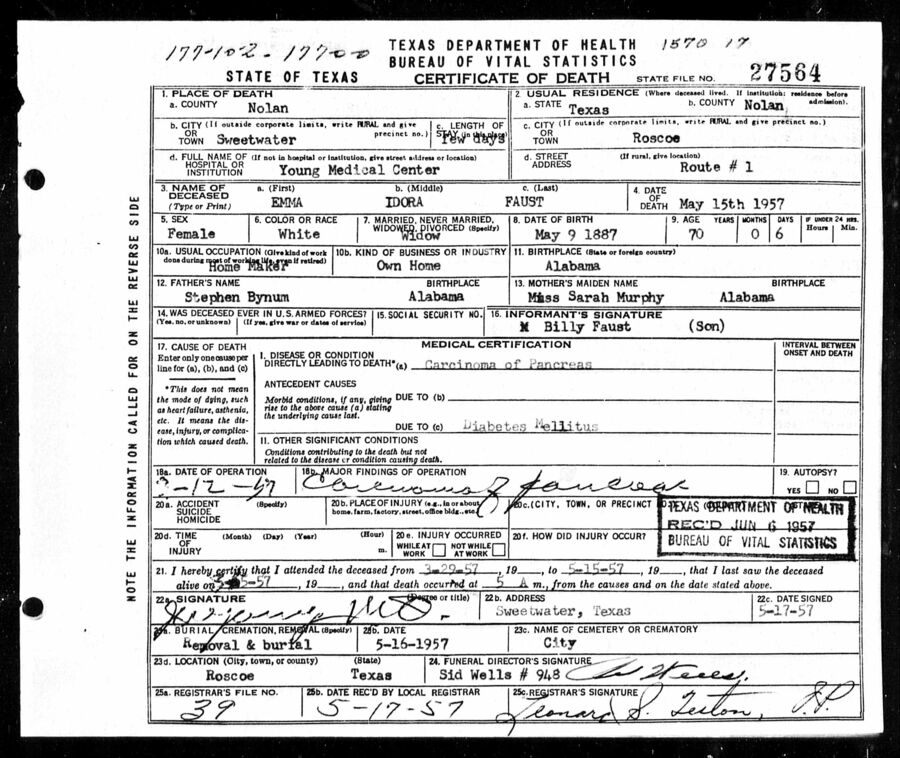 TEXAS DEPARTMENT OF HEALTH
177-102-17700 1570 17
BUREAU OF VITAL STATISTICS
STATE OF TEXAS CERTIFICATE OF DEATH STATE FILE NO. 27564
1. PLACE OF DEATH
a. COUNTY Nolan
2. USUAL RESIDENCE (Where deceased lived. If institution: residence before admission).
a. STATE Texas b. COUNTY Nolan
b. CITY (If outside corporate limits, write RURAL and give precinct no.)
OR
TOWN Sweetwater
c. LENGTH OF
STAY (in this place)
few days
c. CITY (If outside corporate limits, write RURAL and give precinct no.)
OR
TOWN Roscoe
d. FULL NAME OF (If not in hospital or institution, give street address or location)
HOSPITAL OR
INSTITUTION Young Medical Center
d. STREET (If rural, give location)
ADDRESS Route # 1
3. NAME OF DECEASED
(Type or Print)
a. (First) b. (Middle) c. (Last)
EMMA IDORA FAUST
4. DATE
OF
DEATH May 15th 1957
5. SEX
Female
6. COLOR OR RACE
White
7. MARRIED, NEVER MARRIED,
WIDOWED, DIVORCED (Specify)
Widow
8. DATE OF BIRTH
May 9 1887
9. AGE YEARS MONTHS DAYS IF UNDER 24 HRS.
Hours Min.
70 0 6
10a. USUAL OCCUPATION (Give kind of work
done during most of working life, even if retired)
Home Maker
10b. KIND OF BUSINESS OR INDUSTRY
Own Home
11. BIRTHPLACE (State or foreign country)
Alabama
12. FATHER'S NAME BIRTHPLACE
Stephen Bynum Alabama
13. MOTHER'S MAIDEN NAME BIRTHPLACE
Miss Sarah Murphy Alabama
14. WAS DECEASED EVER IN U.S. ARMED FORCES?
(Yes, no, or unknown) (If yes, give war or dates of service)
15. SOCIAL SECURITY NO.
16. INFORMANT'S SIGNATURE
X Billy Faust (Son)
17. CAUSE OF DEATH
Enter only one cause per
line for (a), (b), and (c)
*This does not mean
the mode of dying, such
as heart failure, asthenia,
etc. It means the dis-
ease, injury, or complica-
tion which caused death.
MEDICAL CERTIFICATION
INTERVAL BETWEEN
ONSET AND DEATH
I. DISEASE OR CONDITION
DIRECTLY LEADING TO DEATH* (a) Carcinoma of Pancreas
ANTECEDENT CAUSES
Morbid conditions, if any, giving
rise to the above cause (a) stating
the underlying cause last.
DUE TO (b)
DUE TO (c) Diabetes Mellitus
II. OTHER SIGNIFICANT CONDITIONS
Conditions contributing to the death but not
related to the disease or condition causing death.
18a. DATE OF OPERATION
3-12-57
18b. MAJOR FINDINGS OF OPERATION
Carcinoma of pancreas
19. AUTOPSY?
YES NO
20a. ACCIDENT (Specify)
SUICIDE
HOMICIDE
20b. PLACE OF INJURY (e.g., in or about
home, farm, factory, street, office bldg., etc.)
20c. (CITY, TOWN, OR PRECINCT
TEXAS DEPARTMENT OF HEALTH
REC'D JUN 6 1957
BUREAU OF VITAL STATISTICS
20d. TIME (Month) (Day) (Year) (Hour)
OF
INJURY m.
20e. INJURY OCCURRED
WHILE AT WORK NOT WHILE AT WORK
20f. HOW DID INJURY OCCUR?
21. I hereby certify that I attended the deceased from 3-29-57, 19 , to 5-15-57, 19 , that I last saw the deceased
alive on 5-57, 19 , and that death occurred at 5 A m., from the causes and on the date stated above.
22a. SIGNATURE (Degree or title)
MD
22b. ADDRESS
Sweetwater, Texas
22c. DATE SIGNED
5-17-57
23a. BURIAL, CREMATION, REMOVAL (Specify)
Removal & burial
23b. DATE
5-16-1957
23c. NAME OF CEMETERY OR CREMATORY
City
23d. LOCATION (City, town, or county) (State)
Roscoe Texas
24. FUNERAL DIRECTOR'S SIGNATURE
Sid Wells # 948
25a. REGISTRAR'S FILE NO.
39
25b. DATE REC'D BY LOCAL REGISTRAR
5-17-57
25c. REGISTRAR'S SIGNATURE
Leonard S. Teston, J.P.
NOTE THE INFORMATION CALLED FOR ON THE REVERSE SIDE